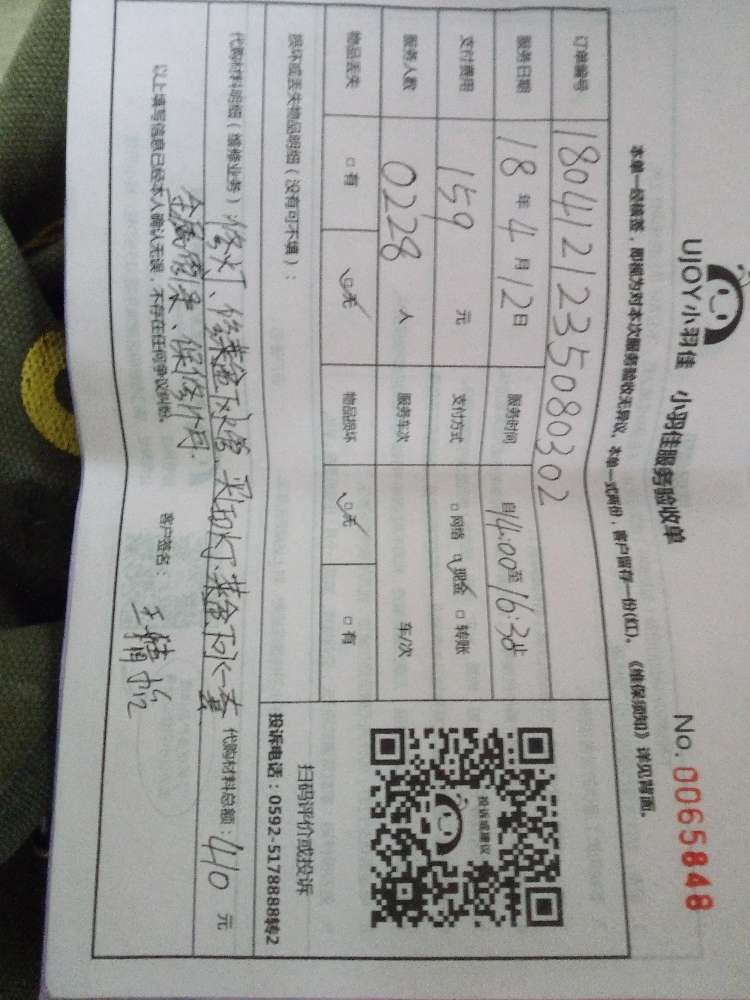 UJOY小羽佳 小羽佳服务验收单 No. 0065848
本单一经签签，即视为对本次服务验收无异议，本单一式两份，客户留存一份(红)。《维保须知》详见背面。
订单编号 180412123508 0302
服务日期 18年4月12日 服务时间 自14:00至16:30止
支付费用 159元 支付方式 □网络 ☑现金 □转账
服务人数 0228人 服务车次 车/次
物品丢失 □有 ☑无 物品损坏 ☑无 □有
损坏或丢失物品明细（没有可不填）：
扫码评价或投诉
投诉或建议
投诉电话：0592-5178888转2
代购材料明细（维修业务） 修灯、修菜盆下水管、买的灯、菜盆下水一套 代购材料总额：410元
保修 月.
以上填写信息已经本人确认无误，不存在任何争议纠纷。 客户签名：